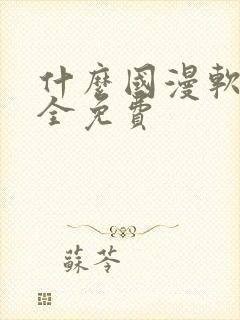 什麼國漫軟
全免費
蘇苓